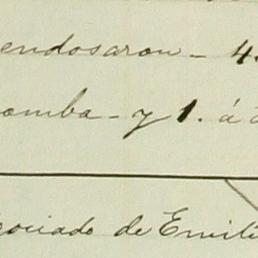 endosaron - 4.
omba - y 1. á
gociado de Emili